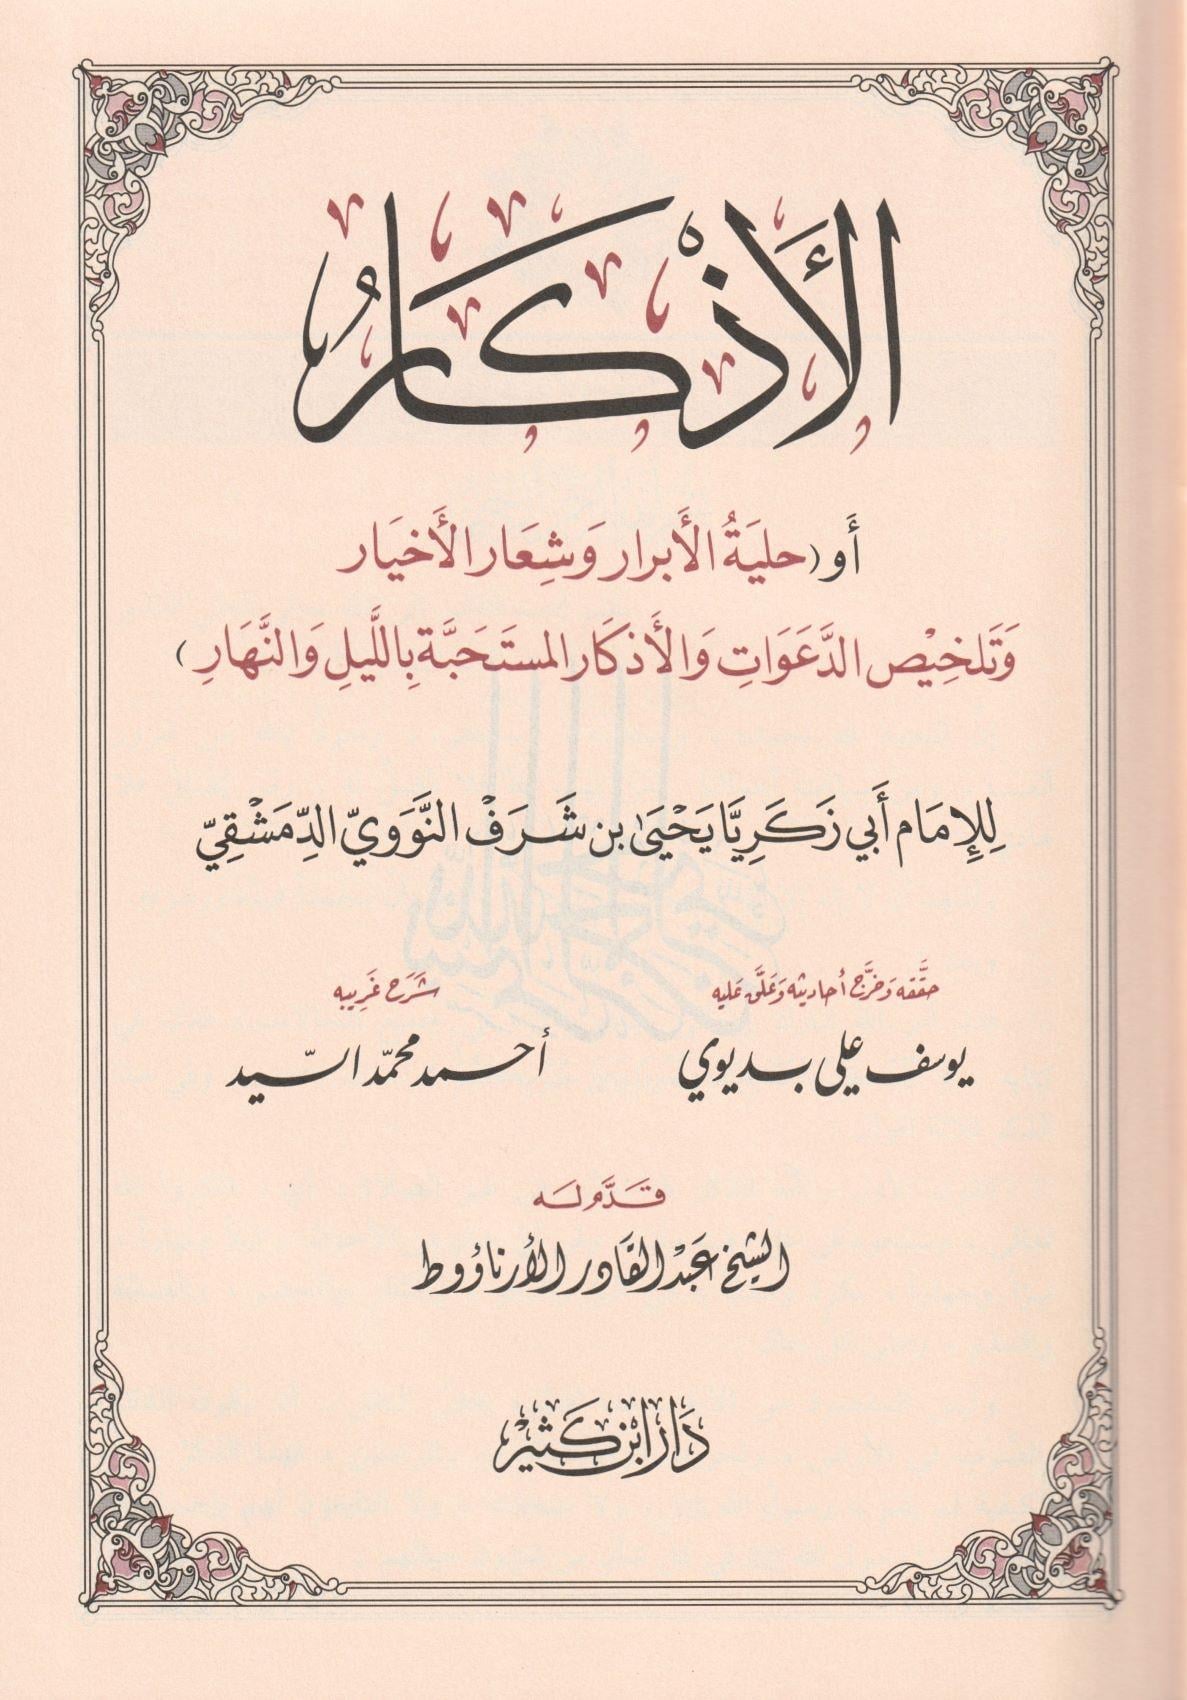 الأَذْكَارُ
أَو (حليَةُ الأَبرار وَشِعَار الأَخيَار
وَتَلخِيْص الدَّعَوَاتِ وَالأَذكَار المستَحَبَّة بِاللَّيلِ وَالنَّهَارِ)
لِلإِمَام أَبي زَكَرِيَّا يَحْيَىٰ بن شَرَفْ النَّوَوِيّ الدِّمَشْقِيّ
حقَّقه وَخرَّج أحاديثه وَعَلَّق عَليه
يوسف علي بديوي
شَرَح غَرِيبه
أحمد محمّد السّيد
قَدَّم لَه
الشيخ عَبْد القَادر الأرناؤوط
دَار ابْن كَثِيْر